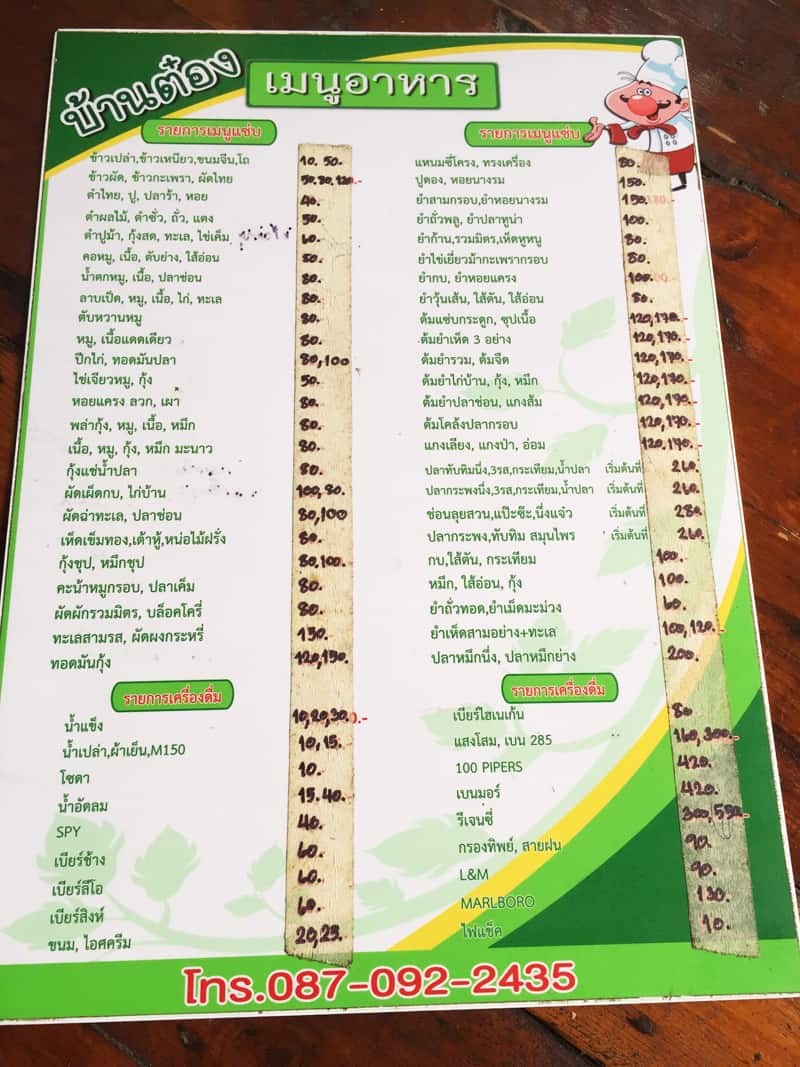 บ้านต๋อง
เมนูอาหาร
รายการเมนูแซ่บ
ข้าวเปล่า,ข้าวเหนียว,ขนมจีน,โถ 10, 50.-
ข้าวผัด, ข้าวกะเพรา, ผัดไทย 50,80,120.-
ตำไทย, ปู, ปลาร้า, หอย 40.
ตำผลไม้, ตำซั่ว, ถั่ว, แตง 50.
ตำปูม้า, กุ้งสด, ทะเล, ไข่เค็ม 60.
คอหมู, เนื้อ, ตับย่าง, ไส้อ่อน 80.
น้ำตกหมู, เนื้อ, ปลาช่อน 80.
ลาบเป็ด, หมู, เนื้อ, ไก่, ทะเล 80.
ตับหวานหมู 80.
หมู, เนื้อแดดเดียว 80.
ปีกไก่, ทอดมันปลา 80,100
ไข่เจียวหมู, กุ้ง 50.
หอยแครง ลวก, เผา 80.
พล่ากุ้ง, หมู, เนื้อ, หมึก 80.
เนื้อ, หมู, กุ้ง, หมึก มะนาว 80.
กุ้งแช่น้ำปลา 80.
ผัดเผ็ดกบ, ไก่บ้าน 100,80.
ผัดฉ่าทะเล, ปลาช่อน 80,100
เห็ดเข็มทอง,เต้าหู้,หน่อไม้ฝรั่ง 80.
กุ้งชุป, หมึกชุป 80,100.
คะน้าหมูกรอบ, ปลาเค็ม 80.
ผัดผักรวมมิตร, บล็อคโครี่ 80.
ทะเลสามรส, ผัดผงกระหรี่ 150.
ทอดมันกุ้ง 120,150.
รายการเครื่องดื่ม
น้ำแข็ง 10,20,30.-
น้ำเปล่า,ผ้าเย็น,M150 10,15.
โซดา 10.
น้ำอัดลม 15.40.
SPY 40.
เบียร์ช้าง 60.
เบียร์ลีโอ 60.
เบียร์สิงห์ 60.
ขนม, ไอศครีม 20,25.
รายการเมนูแซ่บ
แหนมซี่โครง, ทรงเครื่อง 80.
ปูดอง, หอยนางรม 150.
ยำสามกรอบ,ยำหอยนางรม 150.
ยำถั่วพลู, ยำปลาทูน่า 100.
ยำก้าน,รวมมิตร,เห็ดหูหนู 80.
ยำไข่เยี่ยวม้ากะเพรากรอบ 80.
ยำกบ, ยำหอยแครง 100.
ยำวุ้นเส้น, ไส้ตัน, ไส้อ่อน 80.
ต้มแซ่บกระดูก, ซุปเนื้อ 120,170.-
ต้มยำเห็ด 3 อย่าง 120,170.-
ต้มยำรวม, ต้มจืด 120,170.-
ต้มยำไก่บ้าน, กุ้ง, หมึก 120,170.-
ต้มยำปลาช่อน, แกงส้ม 120,170.-
ต้มโคล้งปลากรอบ 120,170.-
แกงเลียง, แกงป่า, อ่อม 120,170.-
ปลาทับทิมนึ่ง,3รส,กระเทียม,น้ำปลา เริ่มต้นที่ 260.
ปลากระพงนึ่ง,3รส,กระเทียม,น้ำปลา เริ่มต้นที่ 260.
ช่อนลุยสวน,แป๊ะซ๊ะ,นึ่งแจ่ว เริ่มต้นที่ 280
ปลากระพง,ทับทิม สมุนไพร เริ่มต้นที่ 260.
กบ,ไส้ตัน, กระเทียม 100.
หมึก, ไส้อ่อน, กุ้ง 100.
ยำถั่วทอด,ยำเม็ดมะม่วง 60.
ยำเห็ดสามอย่าง+ทะเล 100,120.-
ปลาหมึกนึ่ง, ปลาหมึกย่าง 200.
รายการเครื่องดื่ม
เบียร์ไฮเนเก้น 80
แสงโสม, เบน 285 160,300.-
100 PIPERS 420.
เบนมอร์ 420.
รีเจนซี่ 300,550.-
กรองทิพย์, สายฝน 90.
L&M 90.
MARLBORO 130.
ไฟแช็ค 10.
โทร.087-092-2435